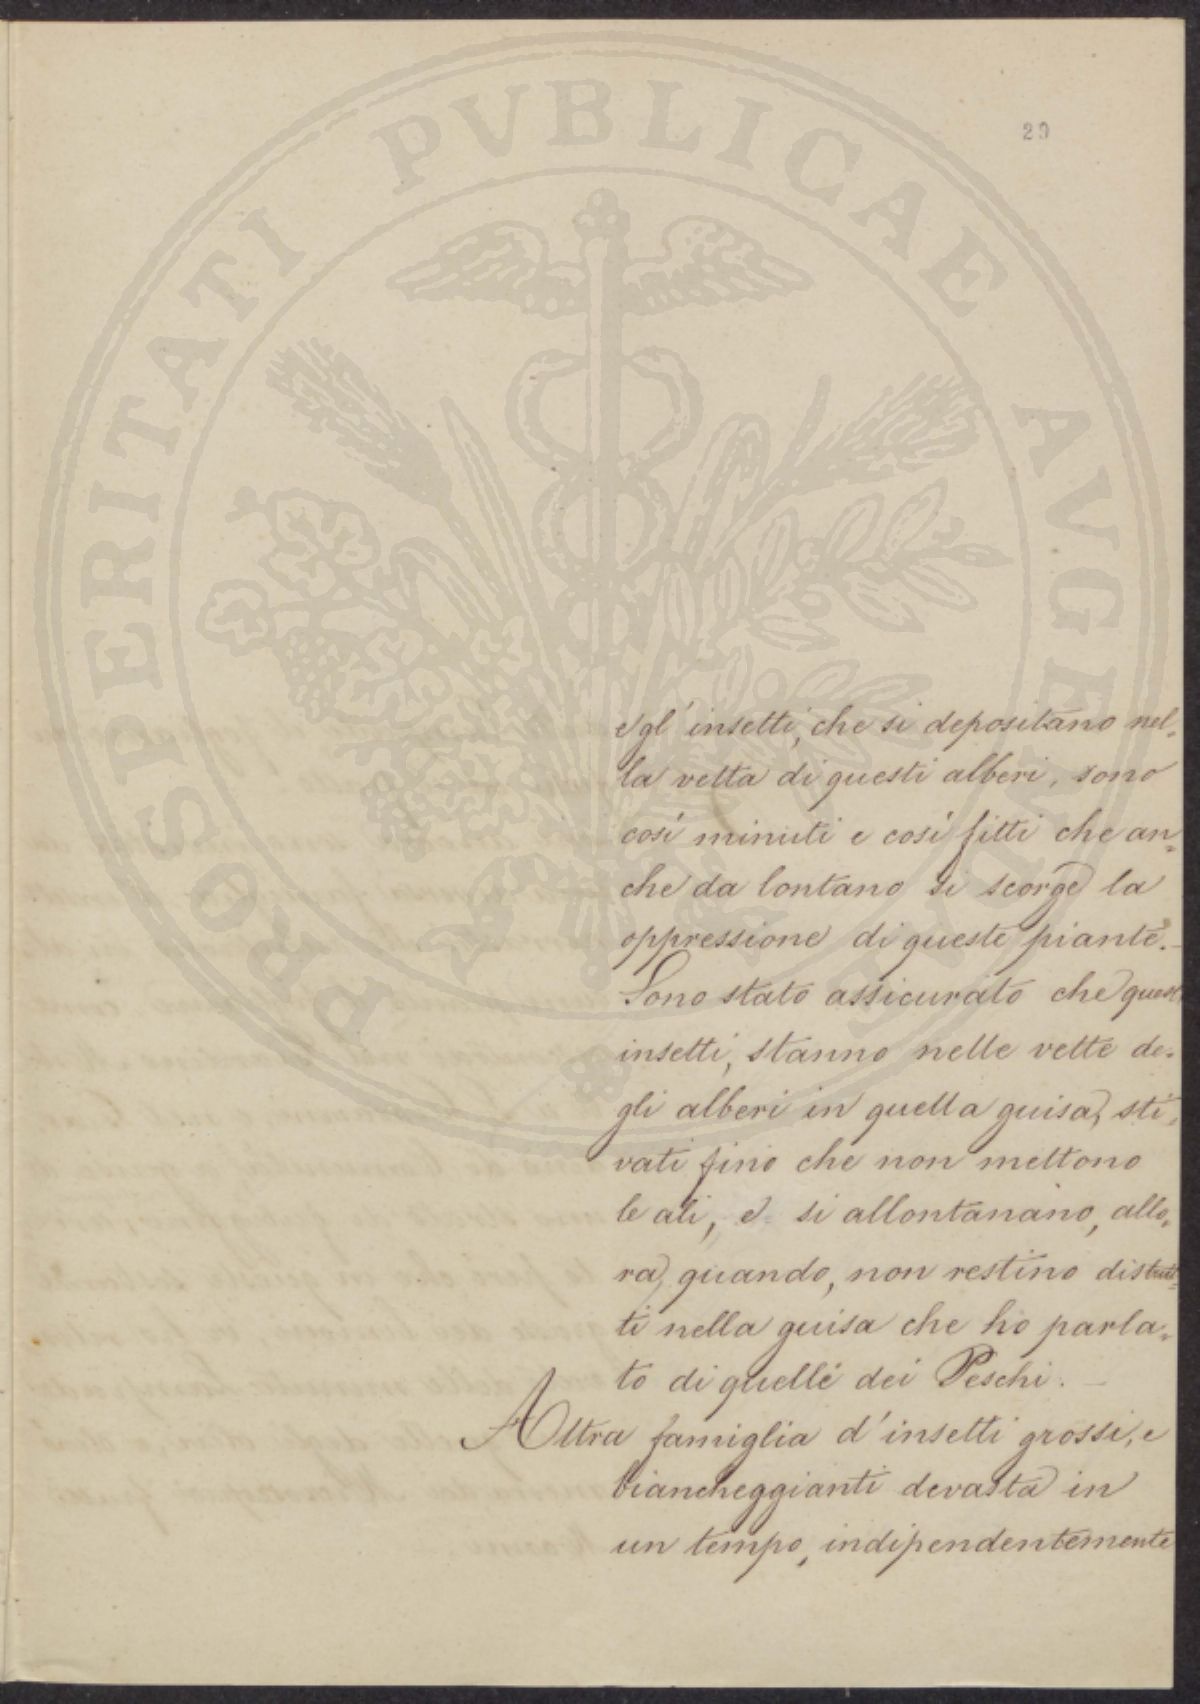 29
PROSPERITATI PVBLICAE AVGENDAE
e gl' insetti, che si depositano nel=
la vetta di questi alberi, sono
così minuti e così fitti che an=
che da lontano si scorge la
oppressione di queste piante. —
Sono stato assicurato che questi
insetti, stanno nelle vette de=
gli alberi in quella guisa, sti=
vati fino che non mettono
le ali, e si allontanano, allo=
ra, quando, non restino distrut=
ti nella guisa che ho parla=
to di quelli dei Peschi. —
Altra famiglia d' insetti grossi, e
biancheggianti devasta in
un tempo, indipendentemente